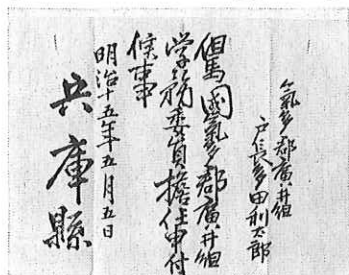 氣多郡廣井組
戸長多田利太郎
但馬國氣多郡廣井組
学務委員擔任申付
候事
明治十五年五月五日
兵庫縣